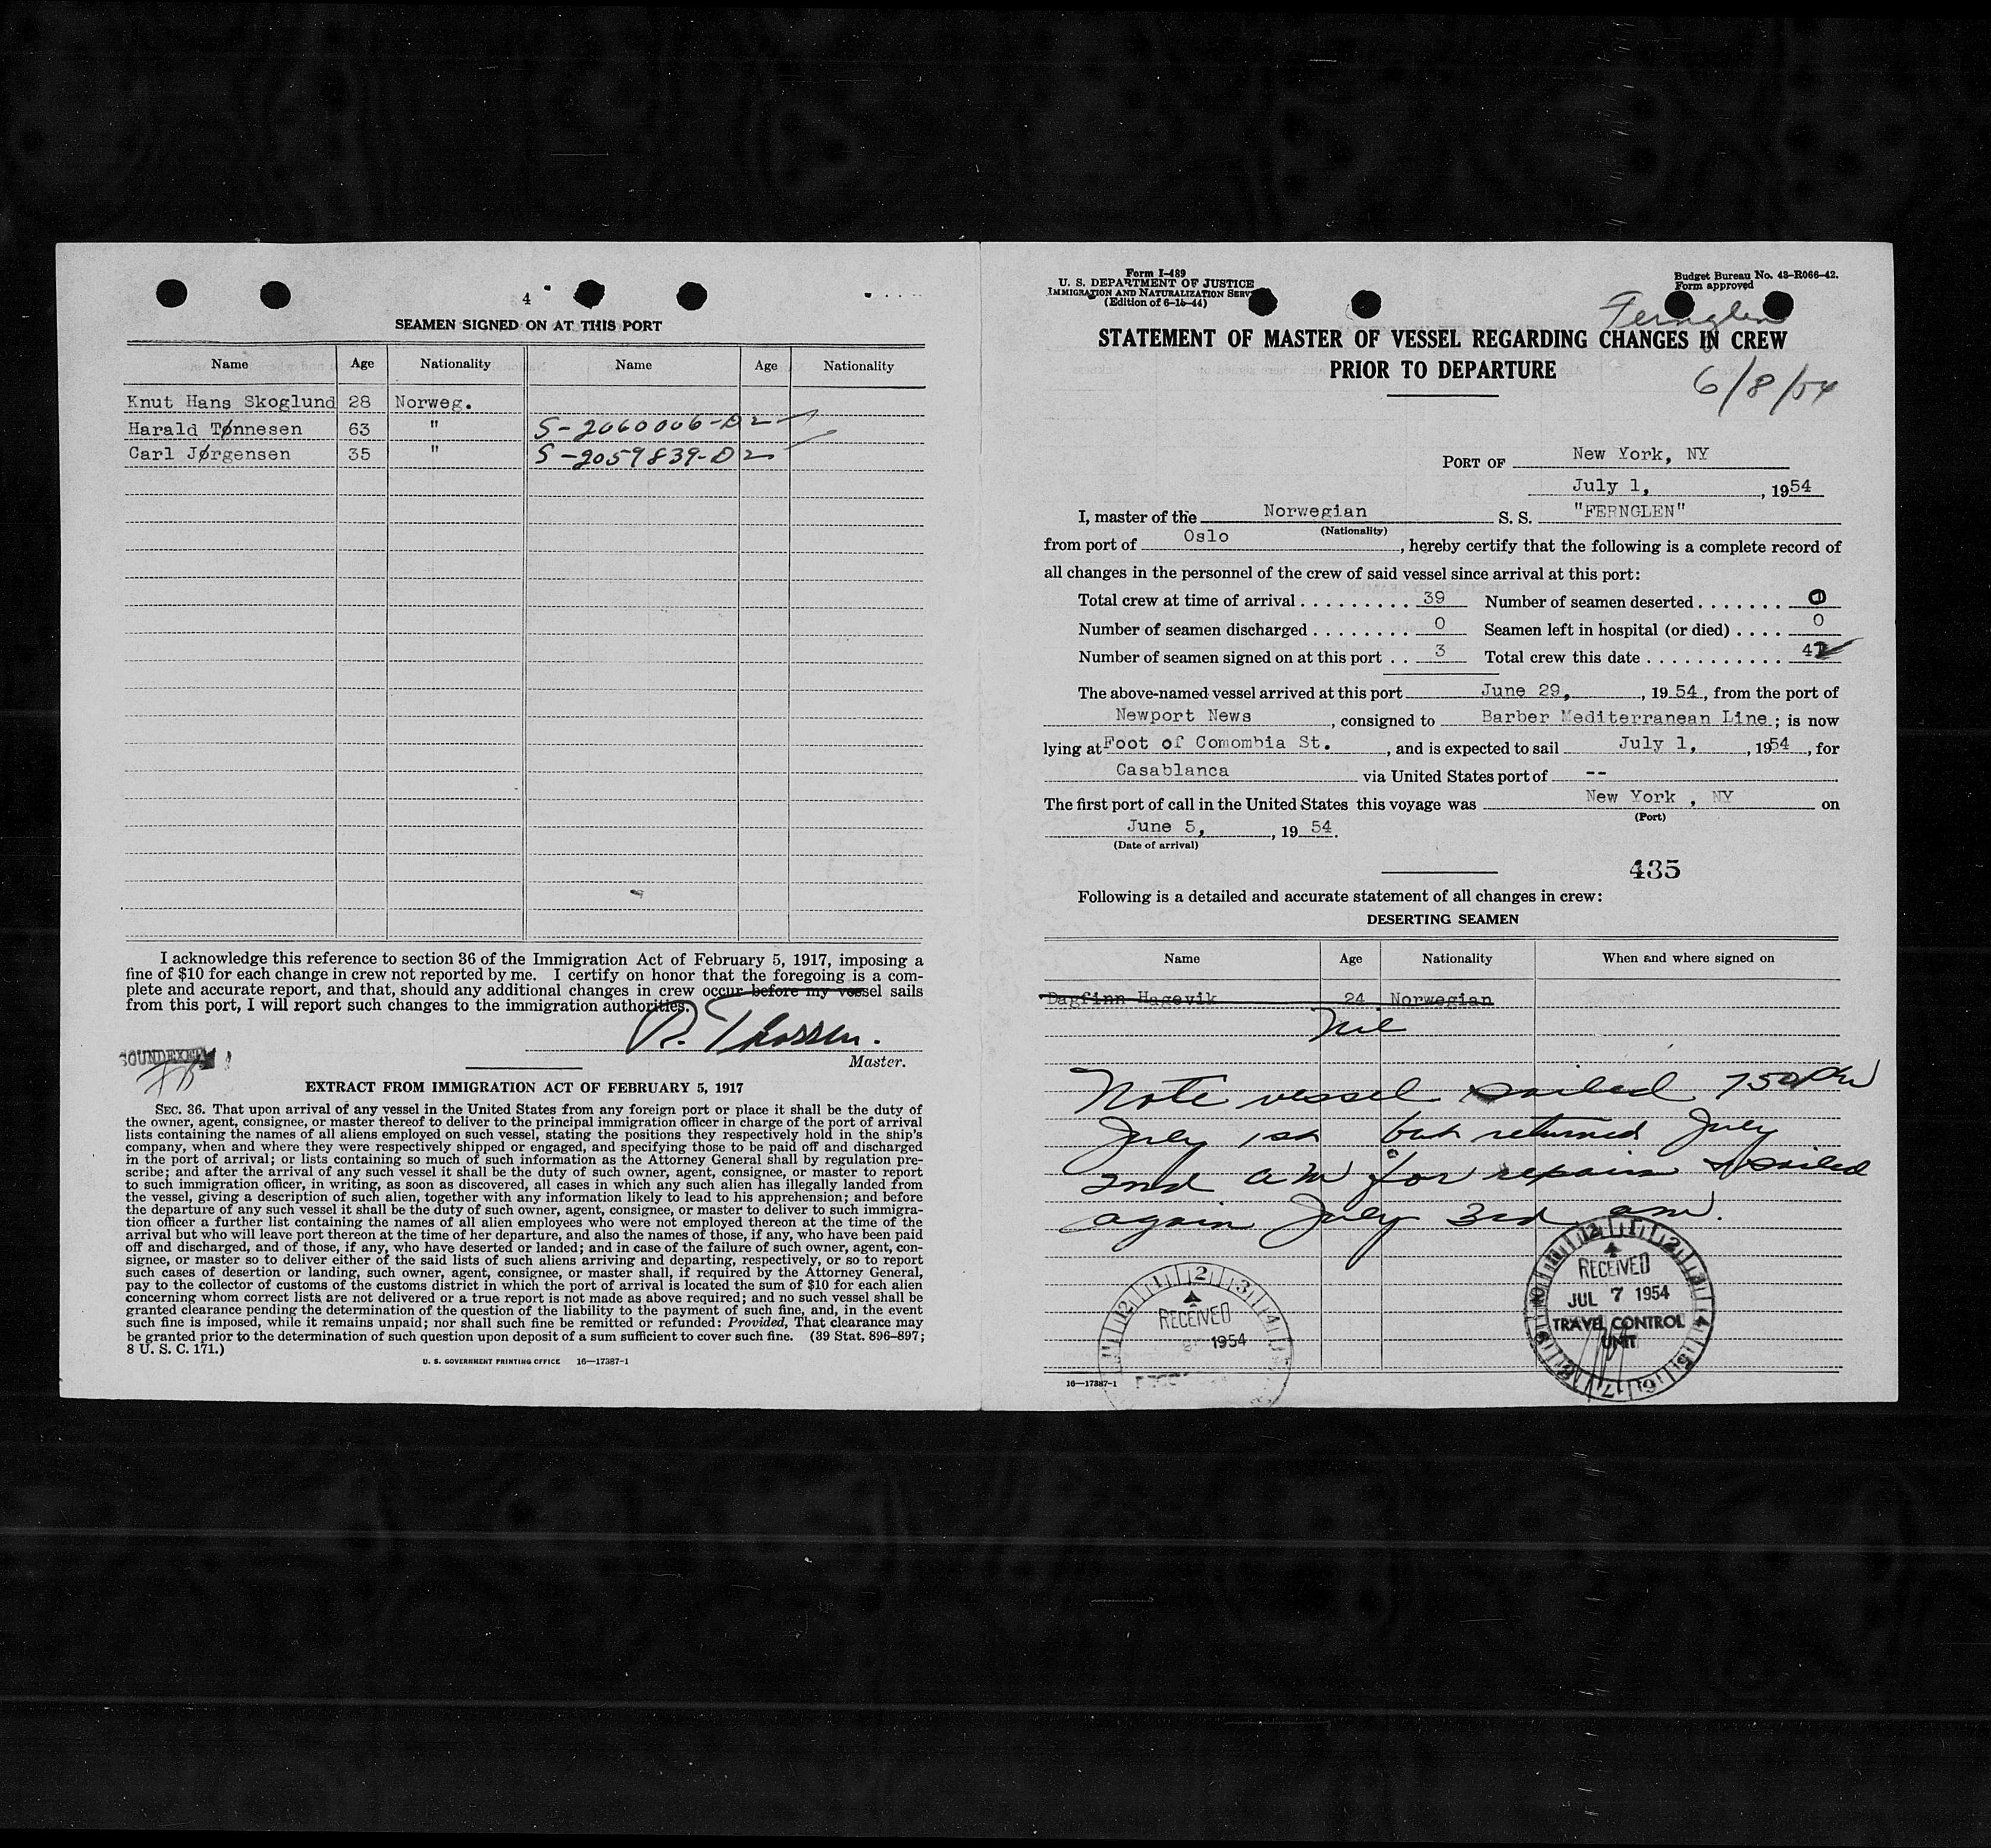 4
SEAMEN SIGNED ON AT THIS PORT
Name Age Nationality Name Age Nationality
Knut Hans Skoglund 28 Norweg.
Harald Tønnesen 63 " S-2060006-D2
Carl Jørgensen 35 " S-2059839-D2
I acknowledge this reference to section 36 of the Immigration Act of February 5, 1917, imposing a
fine of $10 for each change in crew not reported by me. I certify on honor that the foregoing is a com-
plete and accurate report, and that, should any additional changes in crew occur before my vessel sails
from this port, I will report such changes to the immigration authorities.
Master.
SOUNDEXED
EXTRACT FROM IMMIGRATION ACT OF FEBRUARY 5, 1917
SEC. 36. That upon arrival of any vessel in the United States from any foreign port or place it shall be the duty of
the owner, agent, consignee, or master thereof to deliver to the principal immigration officer in charge of the port of arrival
lists containing the names of all aliens employed on such vessel, stating the positions they respectively hold in the ship's
company, when and where they were respectively shipped or engaged, and specifying those to be paid off and discharged
in the port of arrival; or lists containing so much of such information as the Attorney General shall by regulation pre-
scribe; and after the arrival of any such vessel it shall be the duty of such owner, agent, consignee, or master to report
to such immigration officer, in writing, as soon as discovered, all cases in which any such alien has illegally landed from
the vessel, giving a description of such alien, together with any information likely to lead to his apprehension; and before
the departure of any such vessel it shall be the duty of such owner, agent, consignee, or master to deliver to such immigra-
tion officer a further list containing the names of all alien employees who were not employed thereon at the time of the
arrival but who will leave port thereon at the time of her departure, and also the names of those, if any, who have been paid
off and discharged, and of those, if any, who have deserted or landed; and in case of the failure of such owner, agent, con-
signee, or master so to deliver either of the said lists of such aliens arriving and departing, respectively, or so to report
such cases of desertion or landing, such owner, agent, consignee, or master shall, if required by the Attorney General,
pay to the collector of customs of the customs district in which the port of arrival is located the sum of $10 for each alien
concerning whom correct lists are not delivered or a true report is not made as above required; and no such vessel shall be
granted clearance pending the determination of the question of the liability to the payment of such fine, and, in the event
such fine is imposed, while it remains unpaid; nor shall such fine be remitted or refunded: Provided, That clearance may
be granted prior to the determination of such question upon deposit of a sum sufficient to cover such fine. (39 Stat. 896-897;
8 U. S. C. 171.)
U. S. GOVERNMENT PRINTING OFFICE 16—17387-1
Form I-489
U. S. DEPARTMENT OF JUSTICE
IMMIGRATION AND NATURALIZATION SERV
(Edition of 6-15-44)
Budget Bureau No. 43-R066-42.
Form approved
Fernglen
STATEMENT OF MASTER OF VESSEL REGARDING CHANGES IN CREW
PRIOR TO DEPARTURE
6/8/54
PORT OF New York, NY
July 1, , 1954
I, master of the Norwegian S. S. "FERNGLEN"
(Nationality)
from port of Oslo , hereby certify that the following is a complete record of
all changes in the personnel of the crew of said vessel since arrival at this port:
Total crew at time of arrival 39 Number of seamen deserted 0
Number of seamen discharged 0 Seamen left in hospital (or died) 0
Number of seamen signed on at this port 3 Total crew this date 42
The above-named vessel arrived at this port June 29, , 19 54, from the port of
Newport News , consigned to Barber Mediterranean Line ; is now
lying at Foot of Comombia St. , and is expected to sail July 1, , 1954 , for
Casablanca via United States port of --
The first port of call in the United States this voyage was New York , NY on
(Port)
June 5, , 19 54.
(Date of arrival)
435
Following is a detailed and accurate statement of all changes in crew:
DESERTING SEAMEN
Name Age Nationality When and where signed on
Dagfinn Hagevik 24 Norwegian
Nil
Note vessel sailed 750PM
July 1st but returned July
2nd AM for repairs & sailed
again July 3rd am.
RECEIVED
1954
RECEIVED
JUL 7 1954
TRAVEL CONTROL
UNIT
16—17387-1